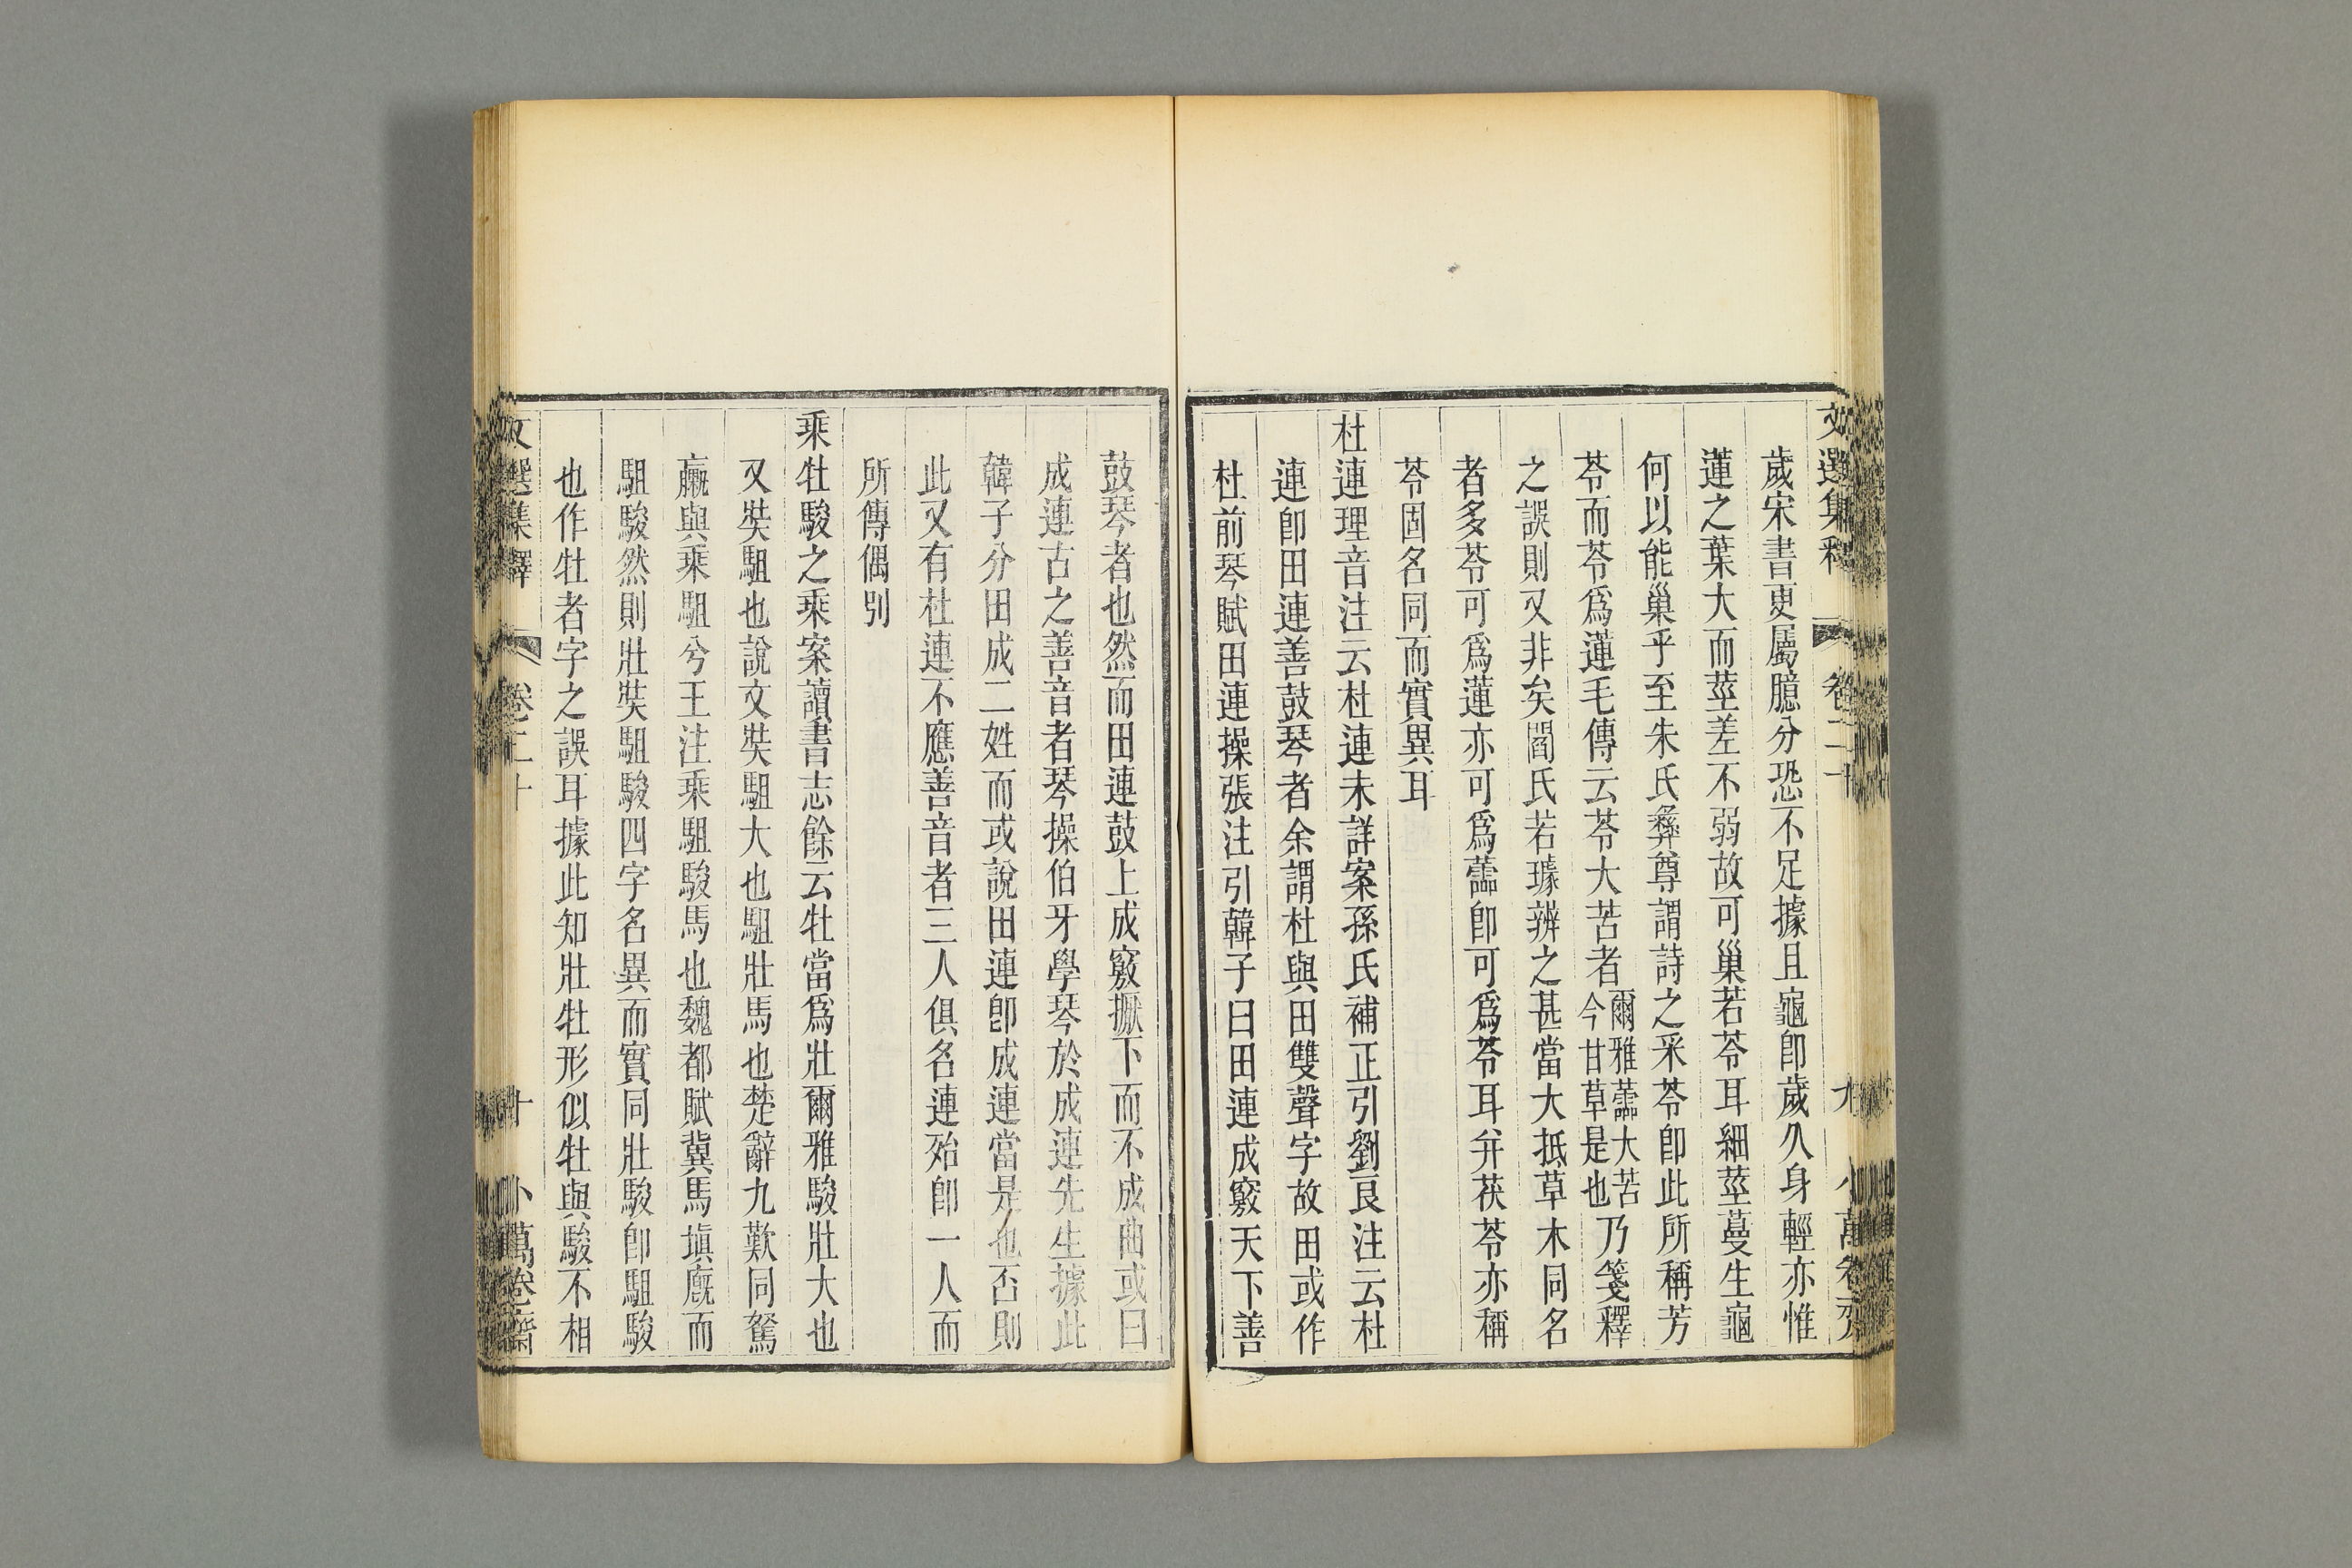 文選集釋 卷二十 九 小萬卷齋
歲宋書更屬臆分恐不足據且龜卽歲久身輕亦惟
蓮之葉大而莖差不弱故可巢若苓耳細莖蔓生龜
何以能巢乎至朱氏彝尊謂詩之采苓卽此所稱芳
苓而苓爲蓮毛傳云苓大苦者爾雅蘦大苦今甘草是也乃箋釋
之誤則又非矣閻氏若璩辨之甚當大抵草木同名
者多苓可爲蓮亦可爲蘦卽可爲苓耳幷茯苓亦稱
苓固名同而實異耳
杜連理音注云杜連未詳案孫氏補正引劉良注云杜
連卽田連善鼓琴者余謂杜與田雙聲字故田或作
杜前琴賦田連操張注引韓子曰田連成竅天下善
鼓琴者也然而田連鼓上成竅擫下而不成曲或曰
成連古之善音者琴操伯牙學琴於成連先生據此
韓子分田成二姓而或說田連卽成連當是也否則
此又有杜連不應善音者三人俱名連殆卽一人而
所傳偶別
乘牡駿之乘案讀書志餘云牡當爲壯爾雅駿壯大也
又奘駔也說文奘駔大也駔壯馬也楚辭九歎同駑
驘與乘駔兮王注乘駔駿馬也魏都賦冀馬塡廐而
駔駿然則壯奘駔駿四字名異而實同壯駿卽駔駿
也作牡者字之誤耳據此知壯牡形似牡與駿不相
文選集釋 卷二十 十 小萬卷齋